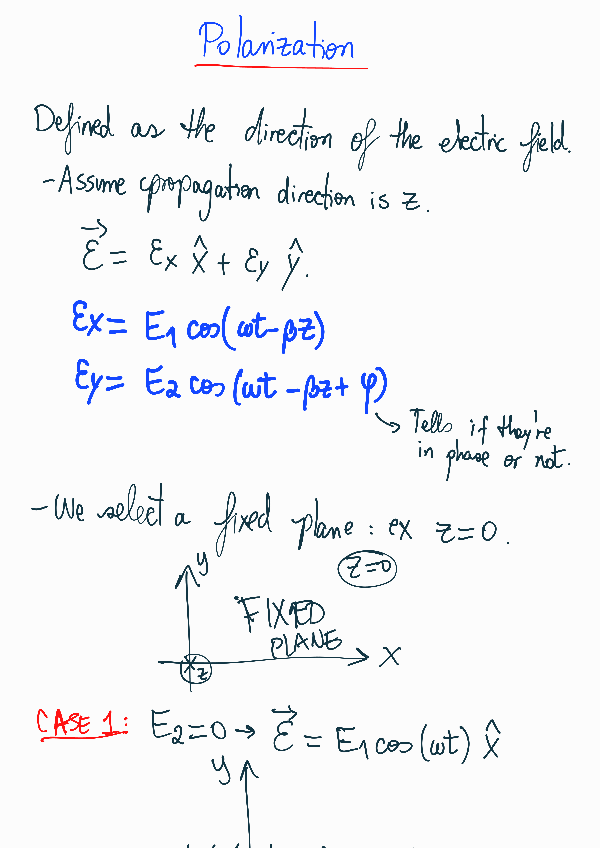 Polarization
Defined as the direction of the electric field.
-Assume cpropagation direction is z.
$\vec{\mathcal{E}} = \mathcal{E}_x \hat{x} + \mathcal{E}_y \hat{y}.$
$\mathcal{E}_x = E_1 \cos(\omega t - \beta z)$
$\mathcal{E}_y = E_2 \cos(\omega t - \beta z + \varphi)$
↳ Tells if they're
in phase or not.
- We select a fixed plane : ex z=0.
z=0
y
FIXED
PLANE
x
z
CASE 1: $E_2 = 0 \rightarrow \vec{\mathcal{E}} = E_1 \cos(\omega t) \hat{x}$
y